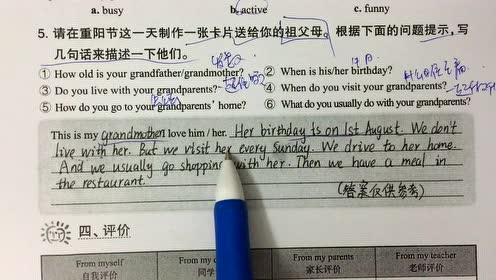 a. busy b. active c. funny
5. 请在重阳节这一天制作一张卡片送给你的祖父母。根据下面的问题提示，写
几句话来描述一下他们。
① How old is your grandfather/grandmother? ② When is his/her birthday?
③ Do you live with your grandparents? ④ When do you visit your grandparents?
⑤ How do you go to your grandparents' home? ⑥ What do you usually do with your grandparents?
This is my grandmother love him / her. Her birthday is on 1st August. We don't
live with her. But we visit her every Sunday. We drive to her home.
And we usually go shopping with her. Then we have a meal in
the restaurant. (答案仅供参考)
四、评价
From myself From my From my parents From my teacher
自我评价 同学 家长评价 老师评价